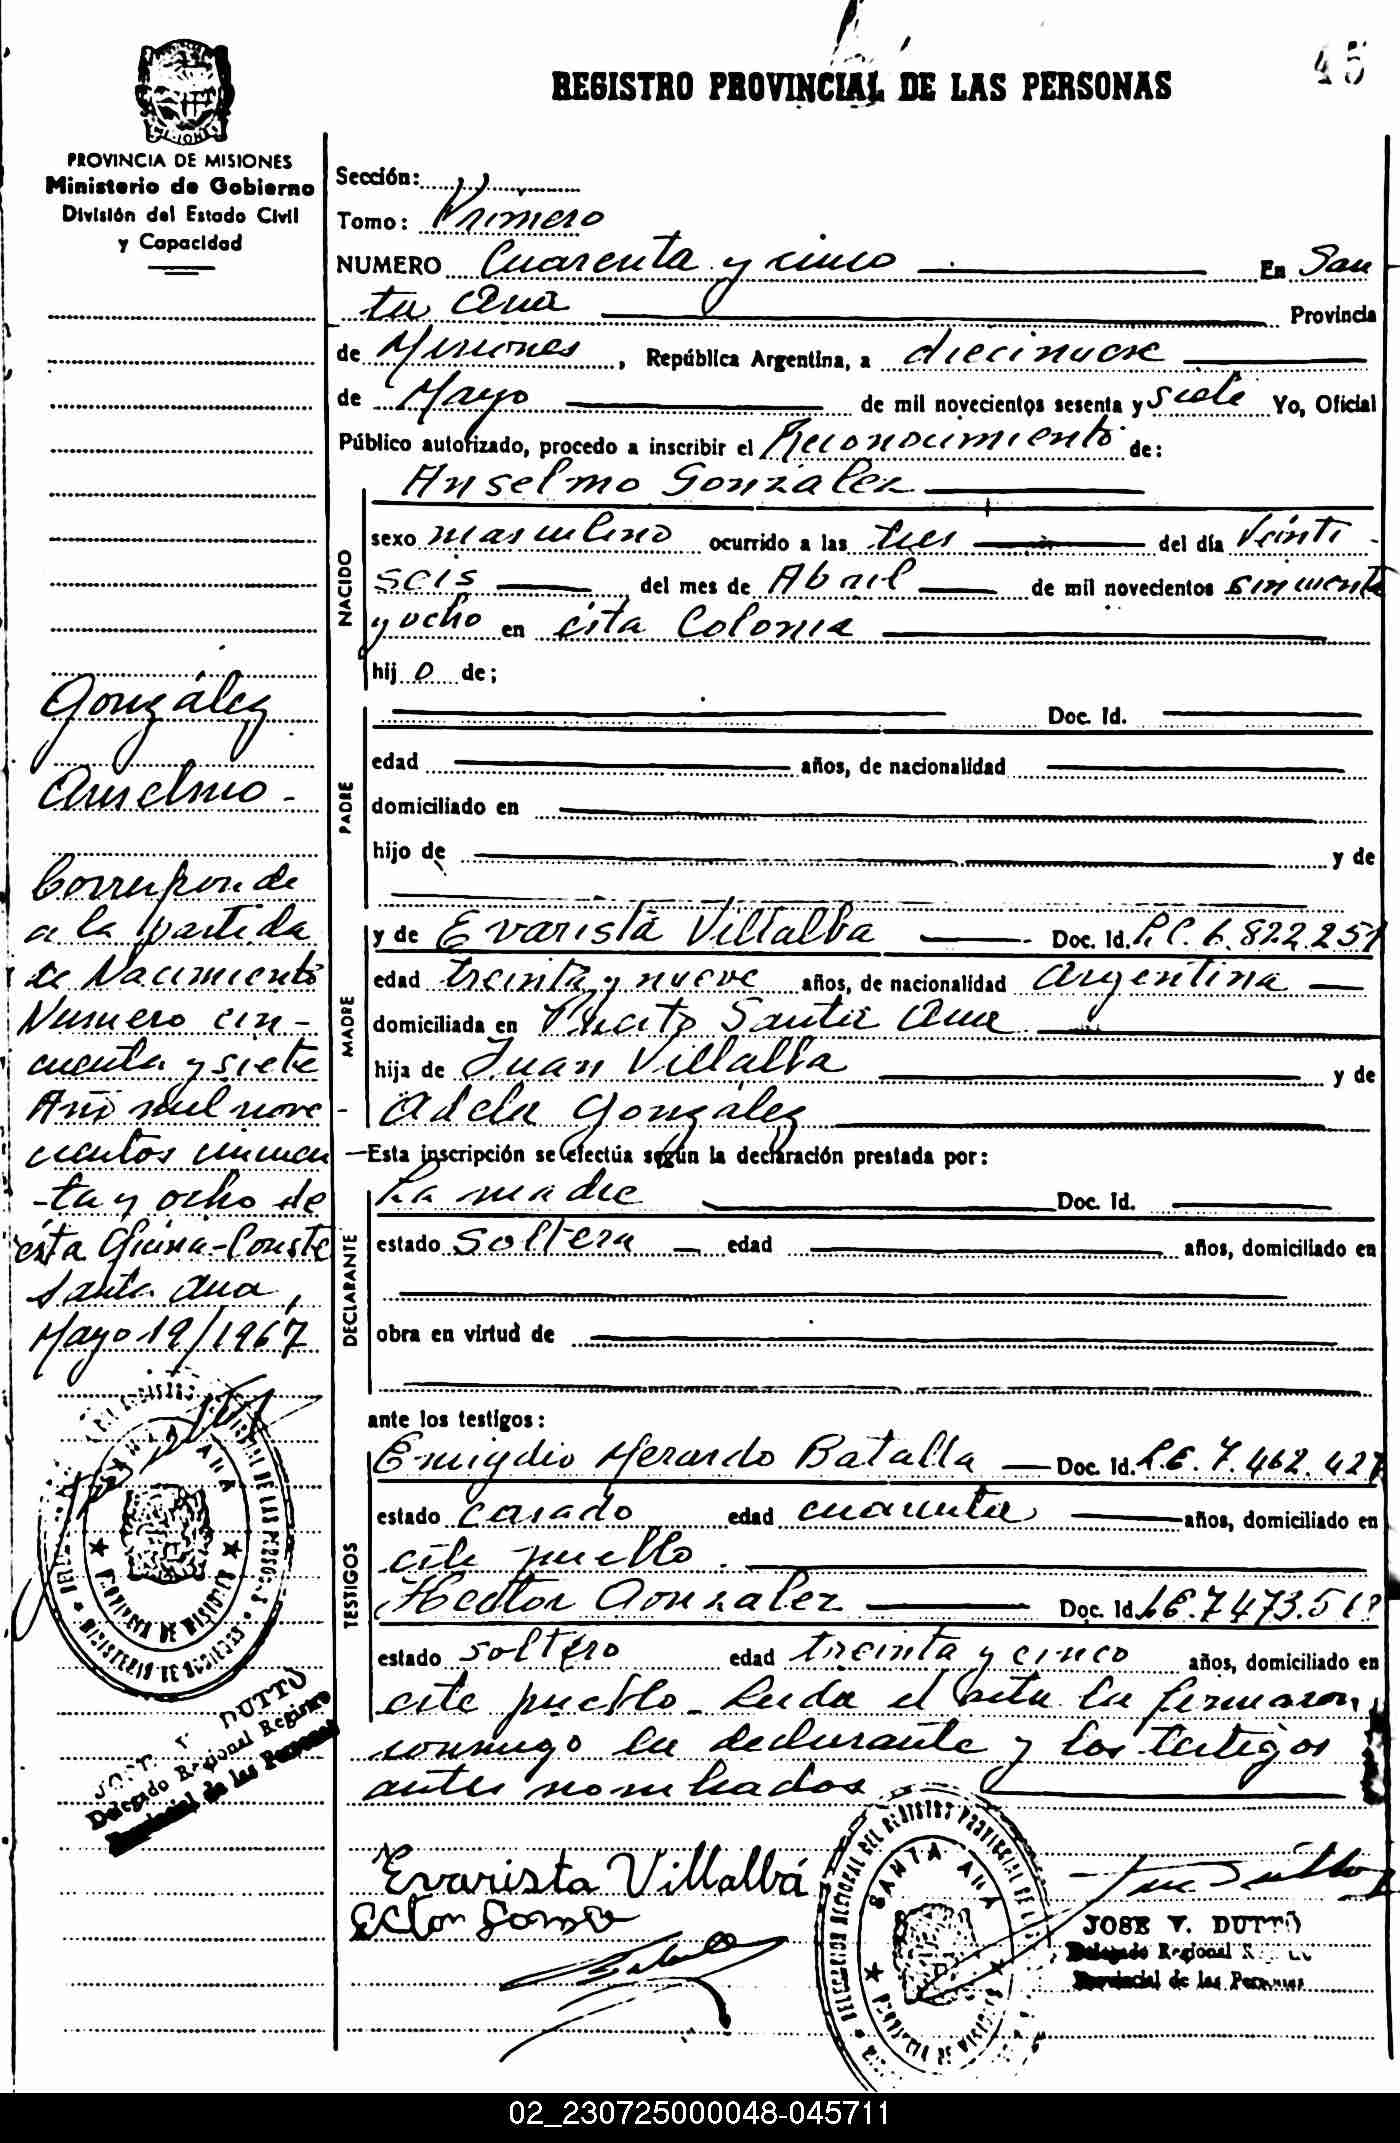 45
REGISTRO PROVINCIAL DE LAS PERSONAS
PROVINCIA DE MISIONES
Ministerio de Gobierno
División del Estado Civil
y Capacidad
Sección:
Tomo: Primero
NUMERO Cuarenta y cinco En San
ta Ana Provincia
de Misiones, República Argentina, a diecinueve
de Mayo de mil novecientos sesenta y siete Yo, Oficial
Público autorizado, procedo a inscribir el Reconocimiento de:
Anselmo Gonzalez
NACIDO
sexo masculino ocurrido a las tres del día Veinti
seis del mes de Abril de mil novecientos cincuenta
y ocho en esta Colonia
hij o de;
PADRE
Doc. Id.
edad años, de nacionalidad
domiciliado en
hijo de y de
MADRE
y de Evarista Villalba Doc. Id. 6.822.251
edad treinta y nueve años, de nacionalidad Argentina
domiciliada en Santa Ana
hija de Juan Villalba y de
Adela González
Esta inscripción se efectúa según la declaración prestada por:
DECLARANTE
La madre Doc. Id.
estado soltera edad años, domiciliado en
obra en virtud de
ante los testigos:
TESTIGOS
Emigdio Gerardo Batalla Doc. Id. L.E. 7.462.427
estado casado edad cuarenta años, domiciliado en
este pueblo.
Hector Gonzalez Doc. Id. L.E. 7.473.51
estado soltero edad treinta y cinco años, domiciliado en
este pueblo. Leida el acta la firmaron,
conmigo la declarante y los testigos
antes nombrados
González
Anselmo -
Corresponde
a la partida
de Nacimiento
Numero cin-
cuenta y siete
Año mil nove-
cientos cincuen
-ta y ocho de
esta Oficina-Conste
Santa Ana,
Mayo 19/1967
SANTA ANA
PROVINCIA DE MISIONES
DUTTO
Delegado Regional Registro
Provincial de las Personas
Evarista Villalbá
Ector
DELEGACION REGIONAL DEL REGISTRO PROVINCIAL DE LAS
SANTA ANA
PROVINCIA DE MISIONES
JOSE V. DUTTO
Delegado Regional
Provincial de las Personas
02_230725000048-045711